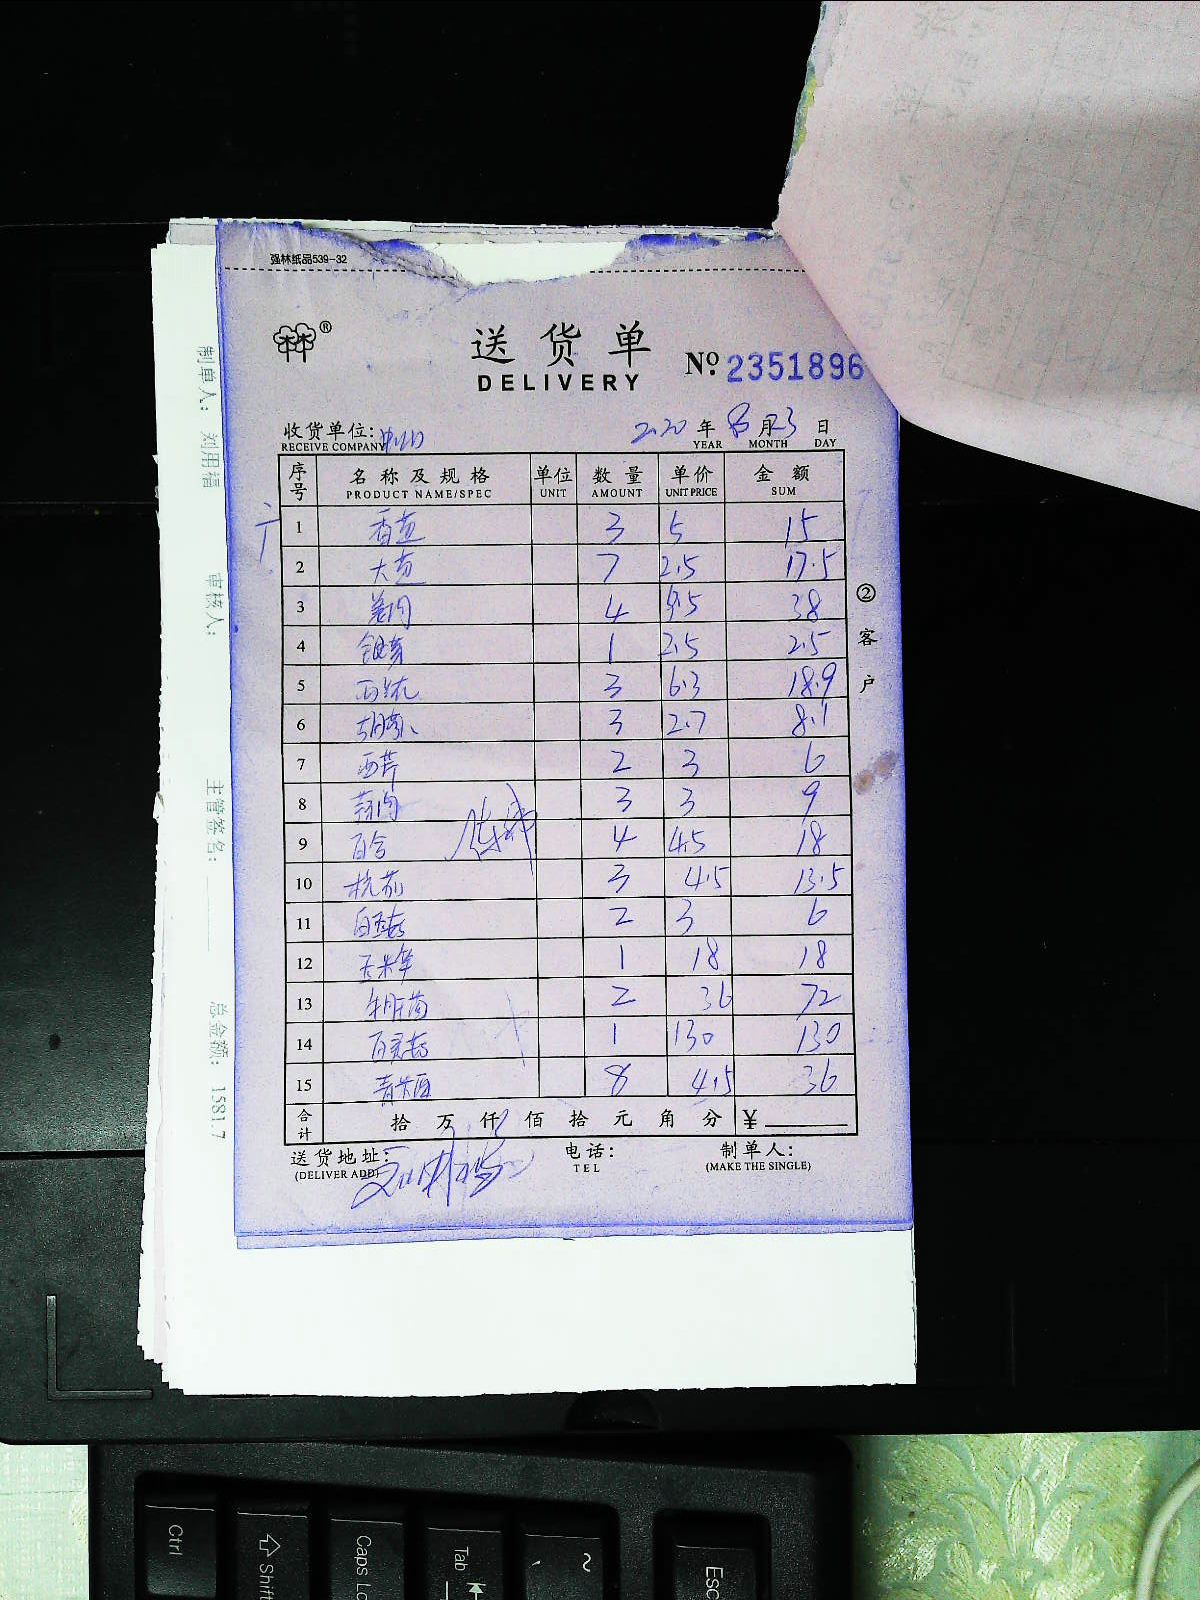 强林纸品539-32
送货单
DELIVERY
№ 2351896
收货单位:
RECEIVE COMPANY
2020 年 8 月 23 日
YEAR MONTH DAY
序号 名称及规格 单位 数量 单价 金额
PRODUCT NAME/SPEC UNIT AMOUNT UNIT PRICE SUM
1 香芹 3 5 15
2 大葱 7 2.5 17.5
3 姜肉 4 9.5 38
4 银芽 1 2.5 2.5
5 西葫 3 6.3 18.9
6 胡萝卜 3 2.7 8.1
7 西芹 2 3 6
8 蒜肉 3 3 9
9 百合 4 4.5 18
10 杭茄 3 4.5 13.5
11 白玉菇 2 3 6
12 玉米笋 1 18 18
13 牛肝菌 2 36 72
14 百灵菇 1 130 130
15 青米豆 8 4.5 36
合计 拾 万 仟 佰 拾 元 角 分 ¥
送货地址: 电话: 制单人:
(DELIVER ADD) TEL (MAKE THE SINGLE)
②客户
制单人: 刘用福 审核人: 主管签名: 总金额: 1581.7
Ctrl
Shift
Caps Lo
Tab
~
Esc